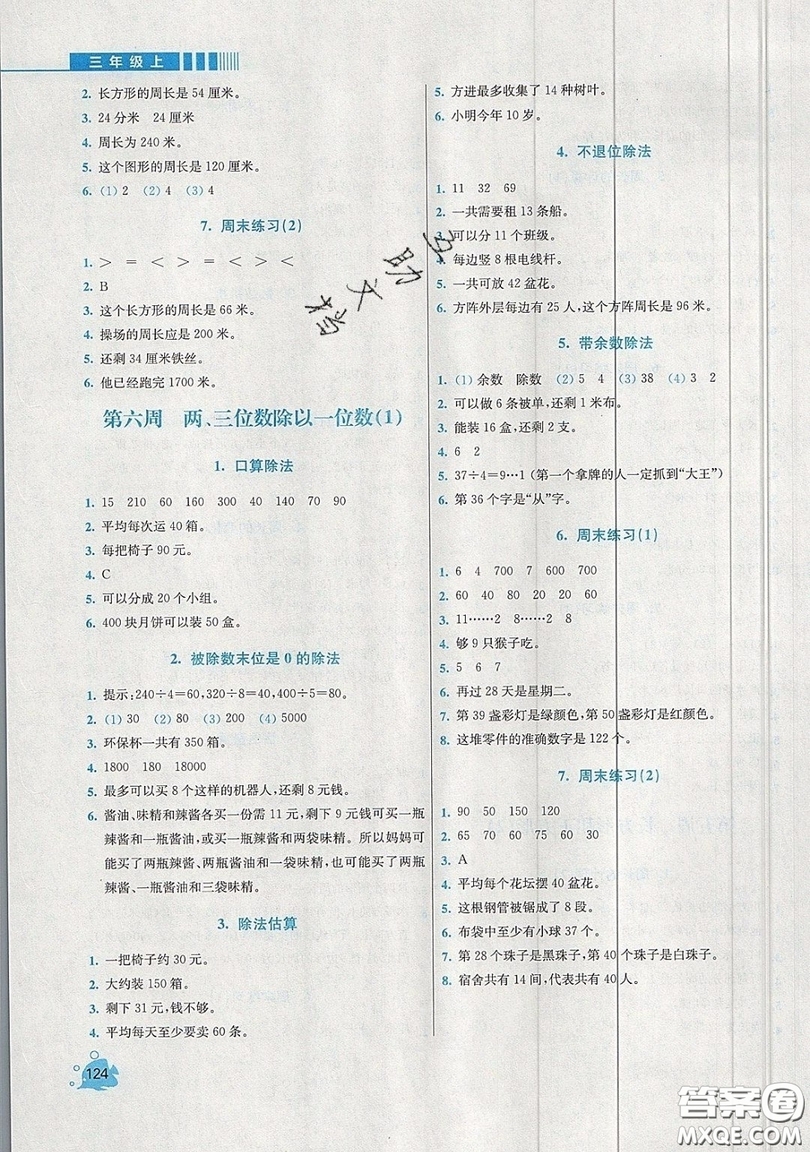 三年级上
2. 长方形的周长是 54 厘米。
3. 24 分米　24 厘米
4. 周长为 240 米。
5. 这个图形的周长是 120 厘米。
6. (1) 2　(2) 4　(3) 4
7. 周末练习(2)
1. ＞　＝　＜　＞　＝　＜　＞　＜
2. B
3. 这个长方形的周长是 66 米。
4. 操场的周长应是 200 米。
5. 还剩 34 厘米铁丝。
6. 他已经跑完 1700 米。
第六周　两、三位数除以一位数(1)
1. 口算除法
1. 15　210　60　160　300　40　140　70　90
2. 平均每次运 40 箱。
3. 每把椅子 90 元。
4. C
5. 可以分成 20 个小组。
6. 400 块月饼可以装 50 盒。
2. 被除数末位是 0 的除法
1. 提示:240÷4=60,320÷8=40,400÷5=80。
2. (1) 30　(2) 80　(3) 200　(4) 5000
3. 环保杯一共有 350 箱。
4. 1800　180　18000
5. 最多可以买 8 个这样的机器人，还剩 8 元钱。
6. 酱油、味精和辣酱各买一份需 11 元，剩下 9 元钱可买一瓶
辣酱和一瓶酱油，或买一瓶辣酱和两袋味精。所以妈妈可
能买了两瓶辣酱、两瓶酱油和一袋味精，也可能买了两瓶
辣酱、一瓶酱油和三袋味精。
3. 除法估算
1. 一把椅子约 30 元。
2. 大约装 150 箱。
3. 剩下 31 元，钱不够。
4. 平均每天至少要卖 60 条。
5. 方进最多收集了 14 种树叶。
6. 小明今年 10 岁。
4. 不退位除法
1. 11　32　69
2. 一共需要租 13 条船。
3. 可以分 11 个班级。
4. 每边竖 8 根电线杆。
5. 一共可放 42 盆花。
6. 方阵外层每边有 25 人，这个方阵周长是 96 米。
5. 带余数除法
1. (1) 余数　除数　(2) 5　4　(3) 38　(4) 3　2
2. 可以做 6 条被单，还剩 1 米布。
3. 能装 16 盒，还剩 2 支。
4. 6　2
5. 37÷4=9…1 (第一个拿牌的人一定抓到“大王”)
6. 第 36 个字是“从”字。
6. 周末练习(1)
1. 6　4　700　7　600　700
2. 60　40　80　20　20　60
3. 11……2　8……2　9
4. 够 9 只猴子吃。
5. 5　6　7
6. 再过 28 天是星期二。
7. 第 39 盏彩灯是绿颜色，第 50 盏彩灯是红颜色。
8. 这堆零件的准确数字是 122 个。
7. 周末练习(2)
1. 90　50　150　120
2. 65　70　60　75　60　30
3. A
4. 平均每个花坛摆 40 盆花。
5. 这根钢管被锯成了 8 段。
6. 布袋中至少有小球 37 个。
7. 第 28 个珠子是黑珠子，第 40 个珠子是白珠子。
8. 宿舍共有 14 间，代表共有 40 人。
124
答案圈
MXQE.COM